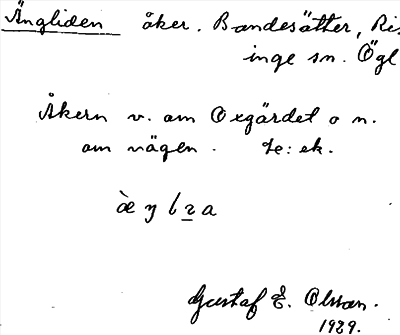 Ängliden åker. Bandesätter, Ris
inge sn. Ögl
Åkern v. om Oxgärdet o n.
om vägen. Te: ek.
Gustaf E. Olsson.
1929.